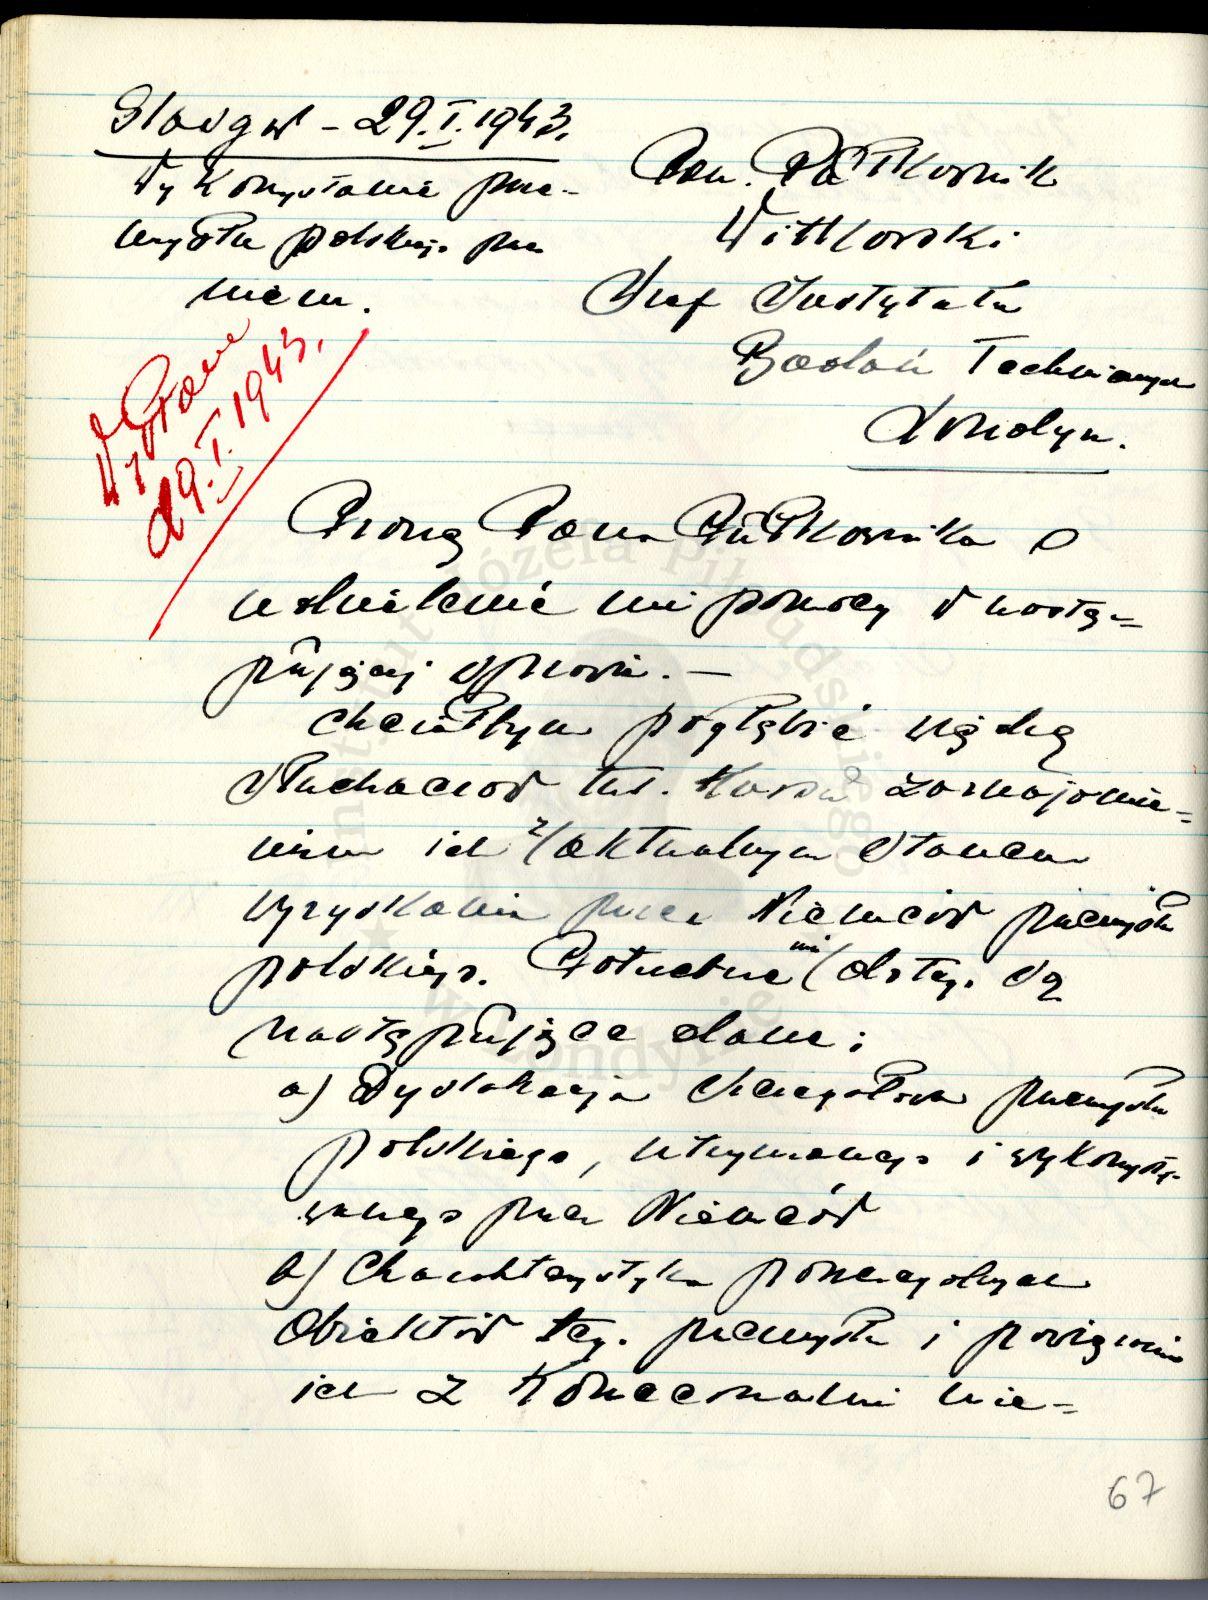 Glasgow - 29.I.1943.
Wykorzystanie prze-
mysłu polskiego przez
niem.
Pan Pułkownik
Wittkowski
Szef Instytutu
Badań Technicznych
Londyn.
Wysłane
29.I.1943.
Proszę Pana Pułkownika o
udzielenie mi pomocy w nastę-
pującej sprawie. —
Chciałbym pogłębić wiedzę
słuchaczów tut. Kursu zaznajomie-
niem ich z aktualnym stanem
wyzyskania przez Niemców przemysłu
polskiego. Potrzebne mi do tego są
następujące dane:
a) Dyslokacja szczegółowa przemysłu
polskiego, utrzymanego i wykorzysty-
wanego przez Niemców
b) Charakterystyka poszczególnych
obiektów tego przemysłu i powiązanie
ich z koncernami nie-
67
Instytut Józefa Piłsudskiego
w Londynie